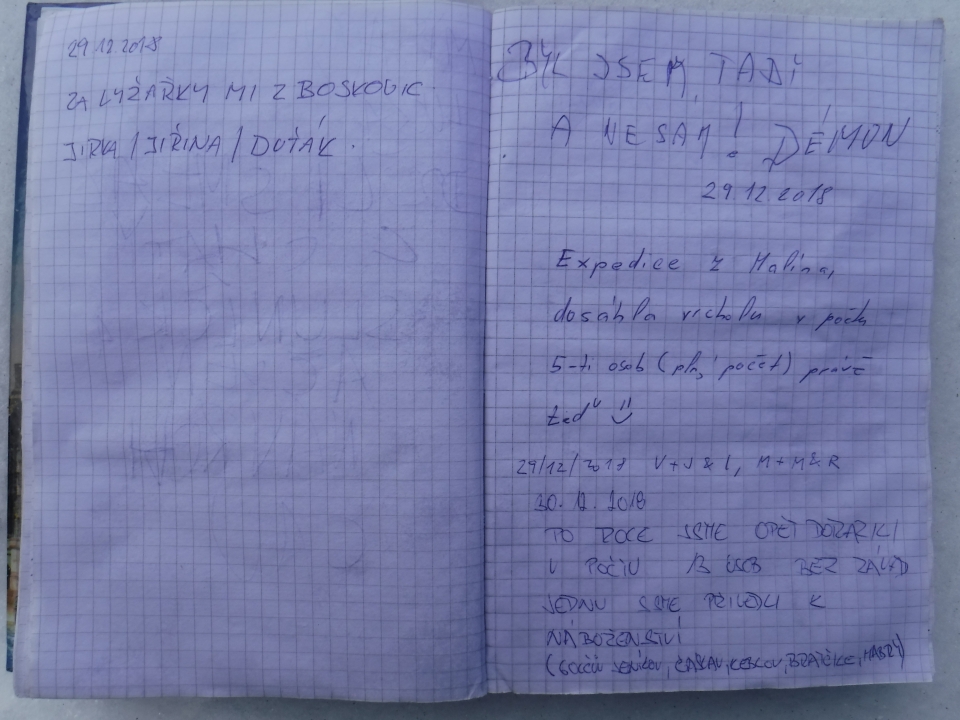 29.12.2018
ZA LYŽAŘKY MI Z BOSKOVIC
JIRKA / JIŘINA / DUŤÁK.
BYL JSEM TADY
A NE SÁM! DÉMON
29.12.2018
Expedice z Malína,
dosáhla vrcholu v počtu
5-ti osob (plný počet) právě
teď
29/12/2018 V+J & L, M+M & R
30.12.2018
PO ROCE JSME OPĚT DORAZILI
V POČTU 13 OSOB BEZ ZÁVAD
JEDNU JSME PŘIVEDLI K
NÁBOŽENSTVÍ
(GOLČŮV JENÍKOV, ČÁSLAV, KEBLOV, BRATČICE, HABRY)